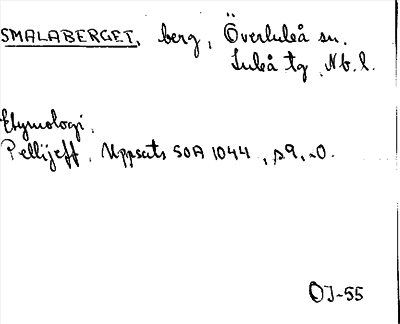 SMALABERGET, berg, Överluleå sn.
Luleå tg, Nb. l.
Etymologi.
Pellijeff, Uppsats SOA 1044, s 9,
OJ-55